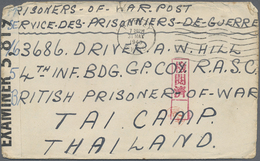 PRISONERS-OF-WAR POST
SERVICE-DES-PRISONNIERS-DE-GUERRE
T/63686. DRIVER A.W. HILL
54TH INF. BDG. GP. COY. R.A.S.C.
BRITISH PRISONER-OF-WAR
TAI CAMP
THAILAND.
EXAMINER 5.819